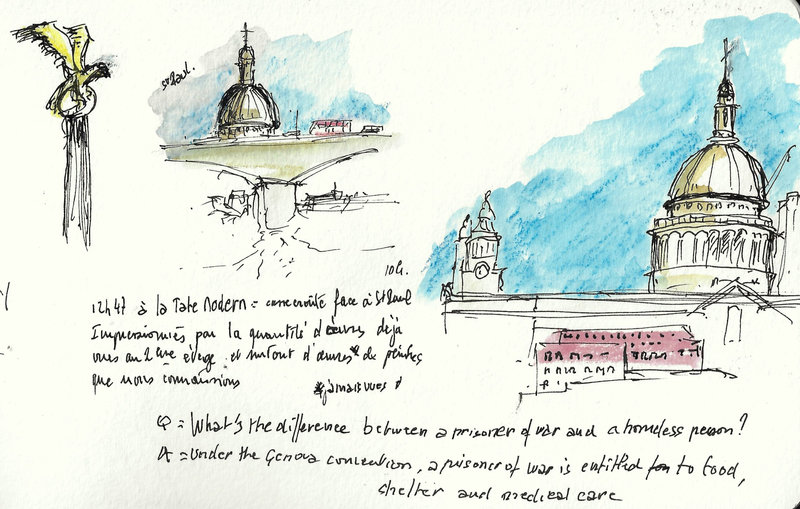 St Paul.
12h47 à la Tate Modern = face à St Paul
Impressionnés par la quantité d'œuvres déjà
vues au 2ème étage et surtout d'œuvres* de peintres
que nous connaissions
*jamais vues !
Q = What's the difference between a prisoner of war and a homeless person?
A = Under the Genova convention, a prisoner of war is entitled to food,
shelter and medical care